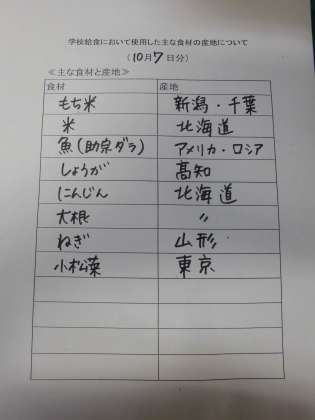 学校給食において使用した主な食材の産地について
（10月7日分）
≪主な食材と産地≫
食材 産地
もち米 新潟・千葉
米 北海道
魚(助宗ダラ) アメリカ・ロシア
しょうが 高知
にんじん 北海道
大根 〃
ねぎ 山形
小松菜 東京